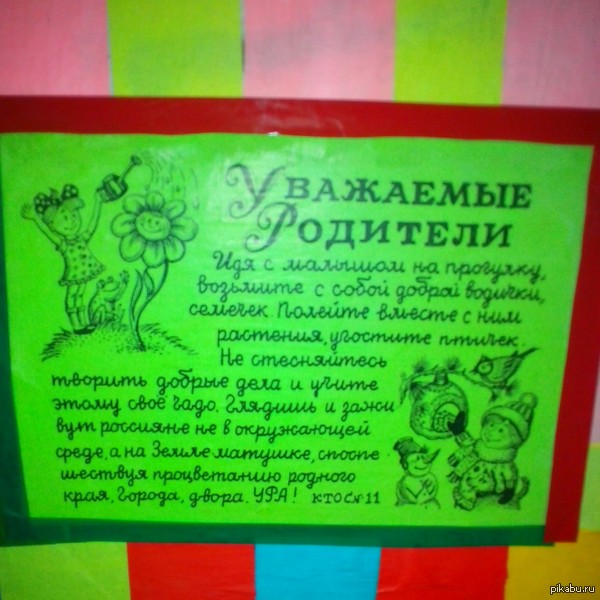 УВАЖАЕМЫЕ
РОДИТЕЛИ
Идя с малышом на прогулку,
возьмите с собой доброй водички,
семечек. Полейте вместе с ним
растения, угостите птичек.
Не стесняйтесь
творить добрые дела и учите
этому своё чадо. Глядишь и зажи
вут россияне не в окружающей
среде, а на Земле матушке, споспе
шествуя процветанию родного
края, города, двора. УРА! КТОС№11
pikabu.ru